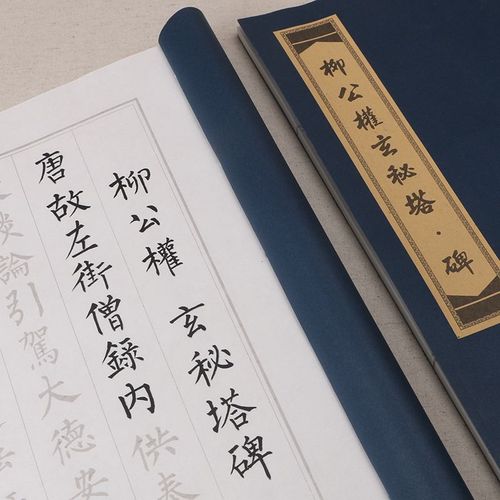 柳公權玄秘塔·碑
柳公權 玄秘塔碑
唐故左街僧錄內供奉
談論引駕大德安